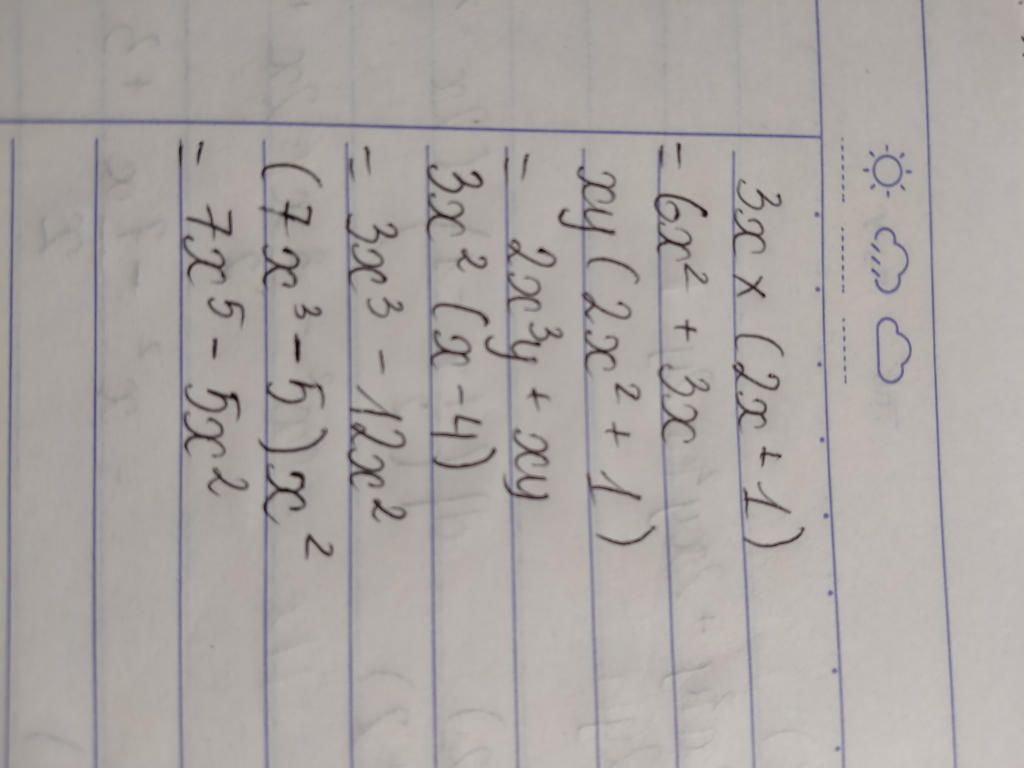 3x × (2x + 1)
= 6x² + 3x
xy (2x² + 1)
= 2x³y + xy
3x² (x - 4)
= 3x³ - 12x²
(7x³ - 5)x²
= 7x⁵ - 5x²